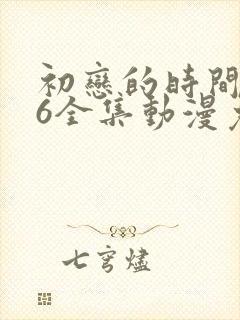 初戀的時間
6全集動漫
七穹燼